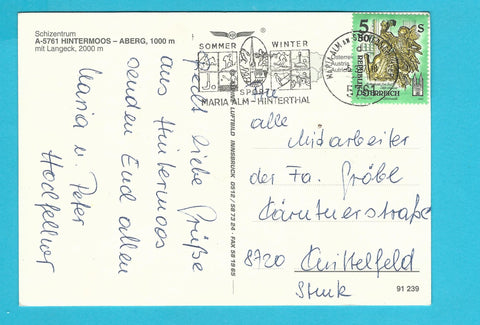 Schizentrum
A-5761 HINTERMOOS – ABERG, 1000 m
mit Langeck, 2000 m
Recht liebe Grüße
aus Hintermoos
senden Euch allen
Maria u. Peter
SOMMER WINTER
SPORT
MARIA ALM - HINTERTHAL
5 S
REPUBLIK
ÖSTERREICH
LUFTBILD INNSBRUCK 0512 / 58 73 24 - FAX 58 19 65
An
alle
Mitarbeiter
der Fa. Gröbl
Kärntnerstraße
8720 Knittelfeld
Stmk
91 239